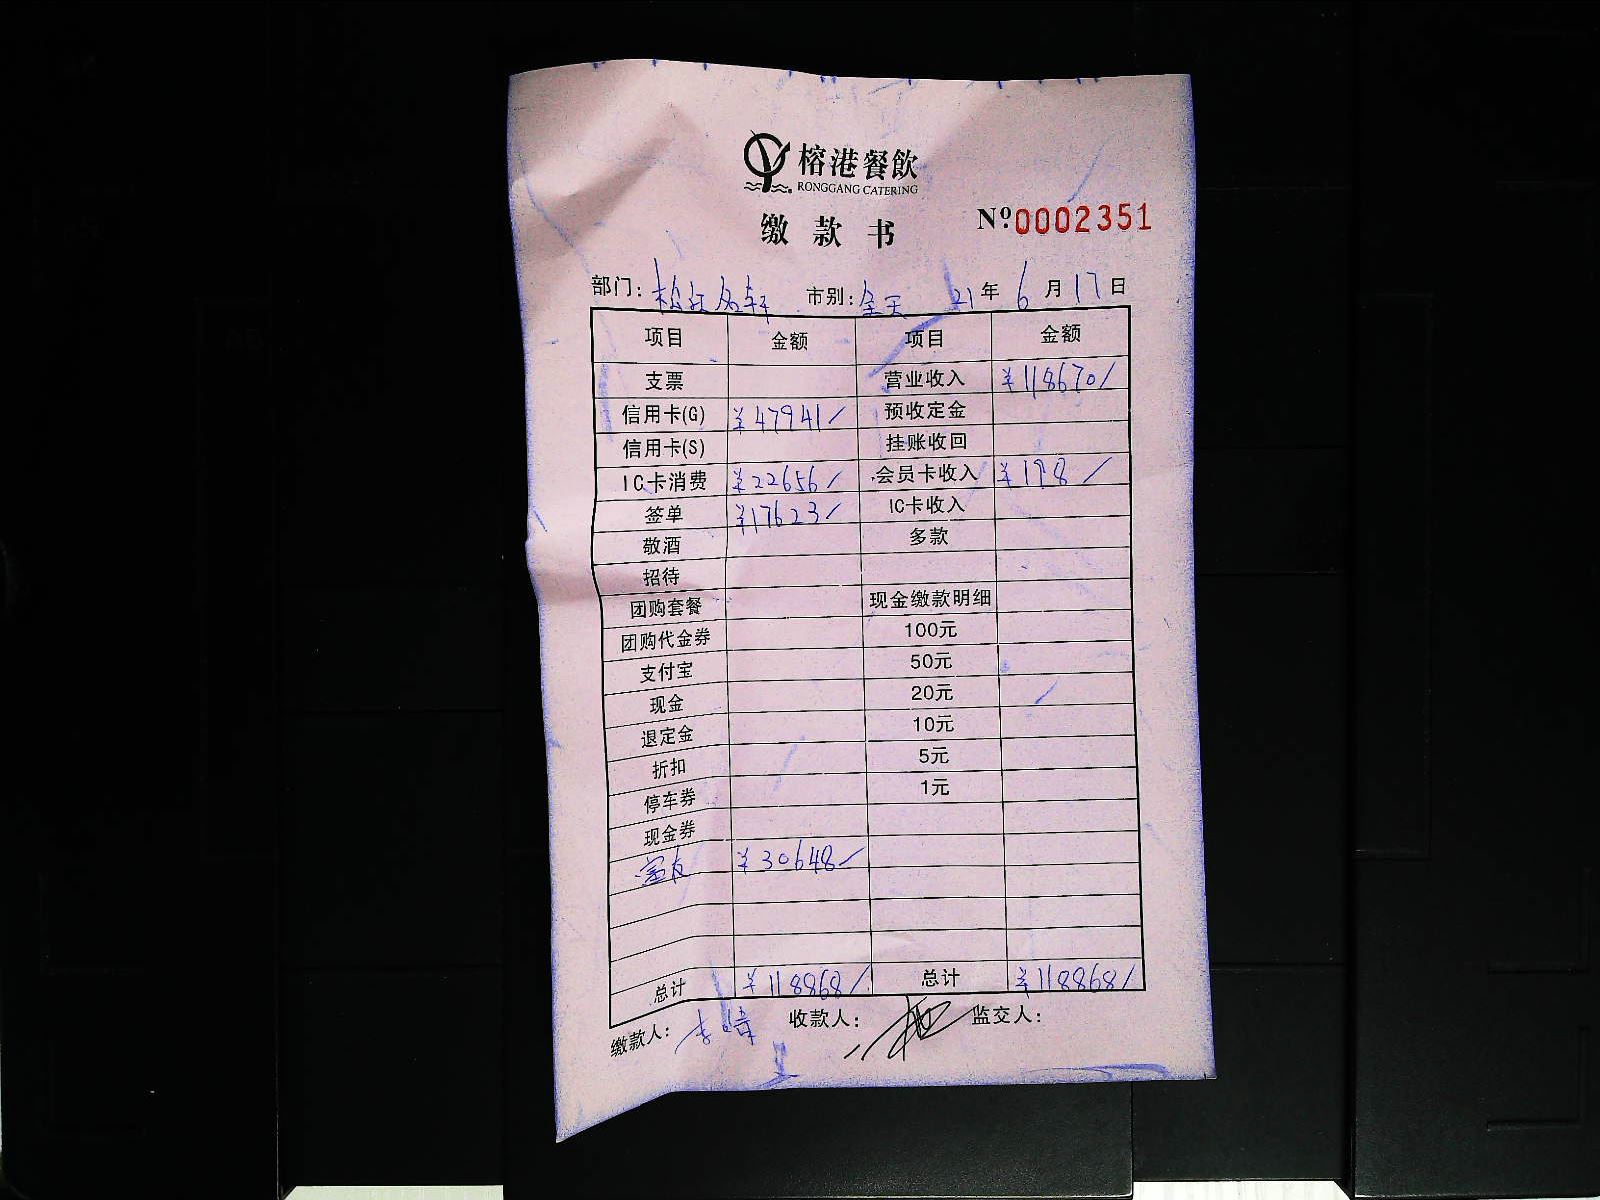 榕港餐飲
RONGGANG CATERING
缴款书 Nº0002351
部门: 松江名轩 市别: 全天 21年6月17日
项目 金额 项目 金额
支票 营业收入 ¥118670/
信用卡(G) ¥47941/ 预收定金
信用卡(S) 挂账收回
IC卡消费 ¥22656/ 会员卡收入 ¥198/
签单 ¥17623/ IC卡收入
敬酒 多款
招待
团购套餐 现金缴款明细
团购代金券 100元
支付宝 50元
现金 20元
退定金 10元
折扣 5元
停车券 1元
现金券
富友 ¥30648/
总计 ¥118868/ 总计 ¥118868/
缴款人: 收款人: 监交人: